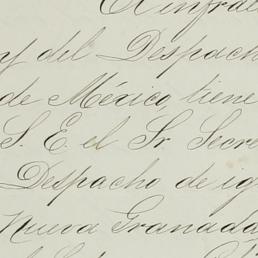 El infra
y del Despach
de México tiene
S. E. el Sr. Secre
Despacho de ig
Nueva Granada